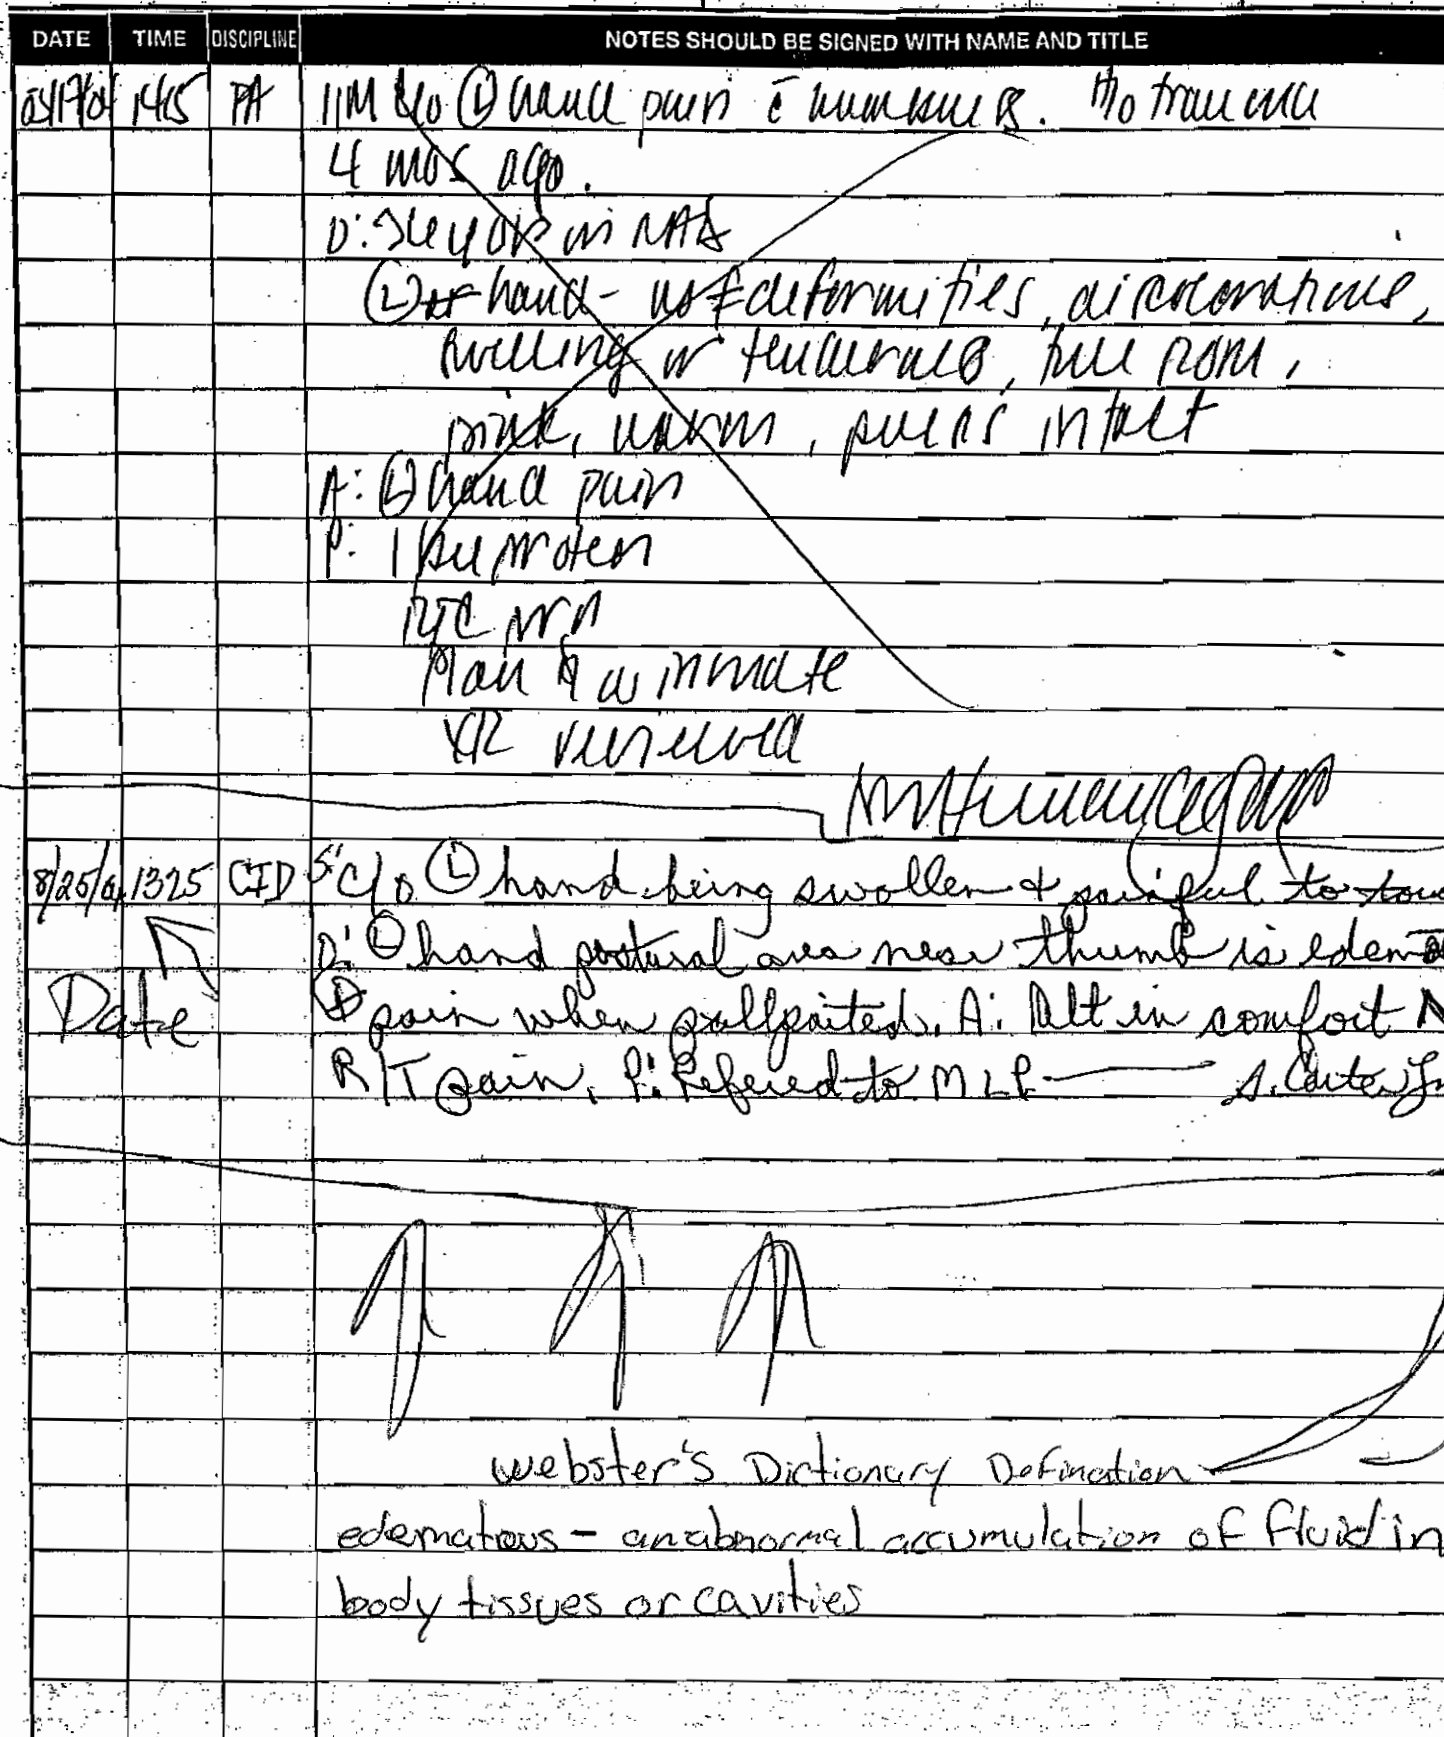 DATE TIME DISCIPLINE NOTES SHOULD BE SIGNED WITH NAME AND TITLE
1415 PA IIM c/o Ⓛ hand pain c̄ numbness. H/o trauma
4 mos ago.
O: in NAD
Ⓛ hand - no deformities, discolorations,
swelling or tenderness, full ROM,
pink, warm, pulses intact
A: Ⓛ hand pain
P: Ibuprofen
RTC prn
Plan inmate
XR reviewed
1325 CID S: c/o Ⓛ hand being swollen + painful to tou
O: Ⓛ hand area near thumb is edema
⊕ pain when pallpaited. A: Alt in comfort
R/T pain. P: Refered to MLP S. Carter
Date
Webster's Dictionary Defination
edematous - an abnormal accumulation of fluid in
body tissues or cavities